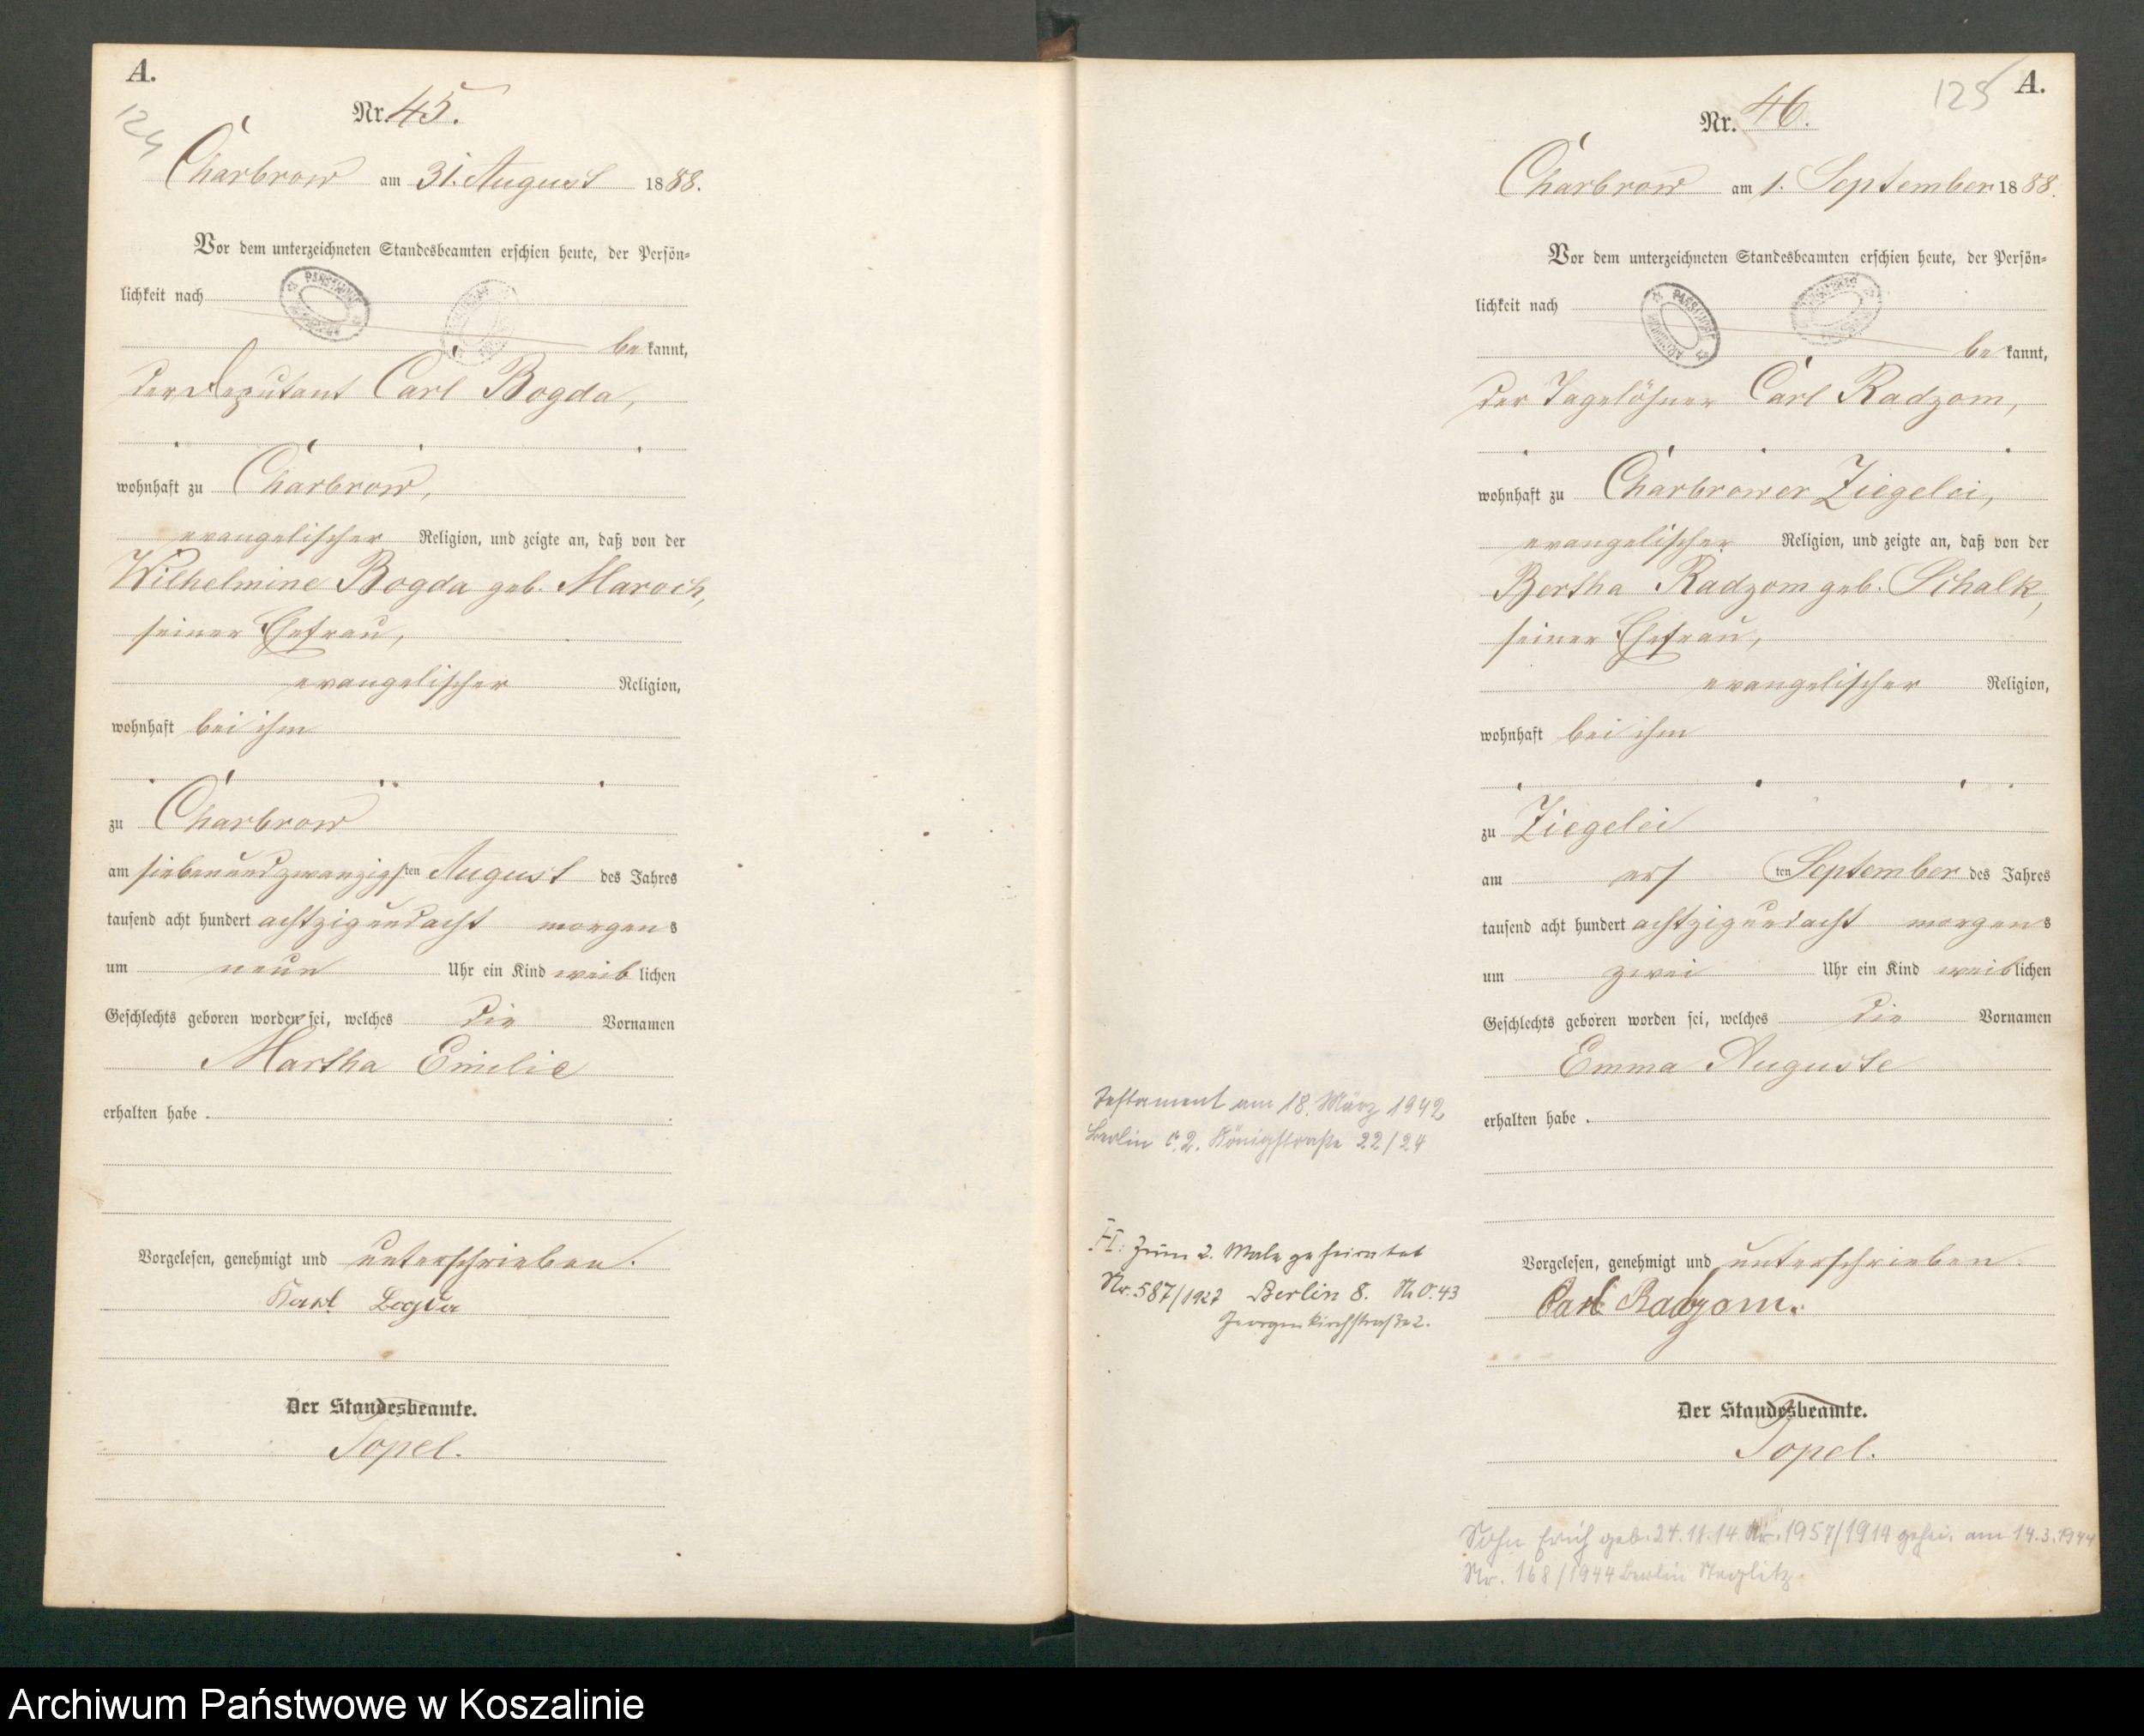 A.
124
Nr. 45.
Charbrow am 31. August 1888.
Vor dem unterzeichneten Standesbeamten erschien heute, der Persön=
lichkeit nach
be kannt,
der Deputant Carl Bogda,
wohnhaft zu Charbrow,
evangelischer Religion, und zeigte an, daß von der
Wilhelmine Bogda geb. Maroch,
seiner Ehefrau,
evangelischer Religion,
wohnhaft bei ihm
zu Charbrow
am siebenundzwanzigsten August des Jahres
tausend acht hundert achtzigundacht morgens
um neun Uhr ein Kind weiblichen
Geschlechts geboren worden sei, welches die Vornamen
Martha Emilie
erhalten habe.
Vorgelesen, genehmigt und unterschrieben.
Karl Bogda
Der Standesbeamte.
Topel.
125
A.
Nr. 46.
Charbrow am 1. September 1888.
Vor dem unterzeichneten Standesbeamten erschien heute, der Persön=
lichkeit nach
be kannt,
der Tagelöhner Carl Radzom,
wohnhaft zu Charbrower Ziegelei,
evangelischer Religion, und zeigte an, daß von der
Bertha Radzom geb. Schalk,
seiner Ehefrau,
evangelischer Religion,
wohnhaft bei ihm
zu Ziegelei
am ersten September des Jahres
tausend acht hundert achtzigundacht morgens
um zwei Uhr ein Kind weiblichen
Geschlechts geboren worden sei, welches die Vornamen
Emma Auguste
erhalten habe.
Vorgelesen, genehmigt und unterschrieben.
Carl Radzom.
Der Standesbeamte.
Topel.
Testament am 18. März 1942
Berlin C.2. Königstraße 22/24
H: Zum 2. Male geheiratet
Nr. 587/1927 Berlin 8. N.O. 43
Georgenkirchstraße 2.
Sohn Erich geb. 24.11.14 Nr. 1957/1914 gehei. am 14.3.1944
Nr. 168/1944 Berlin Steglitz.
Archiwum Państwowe w Koszalinie